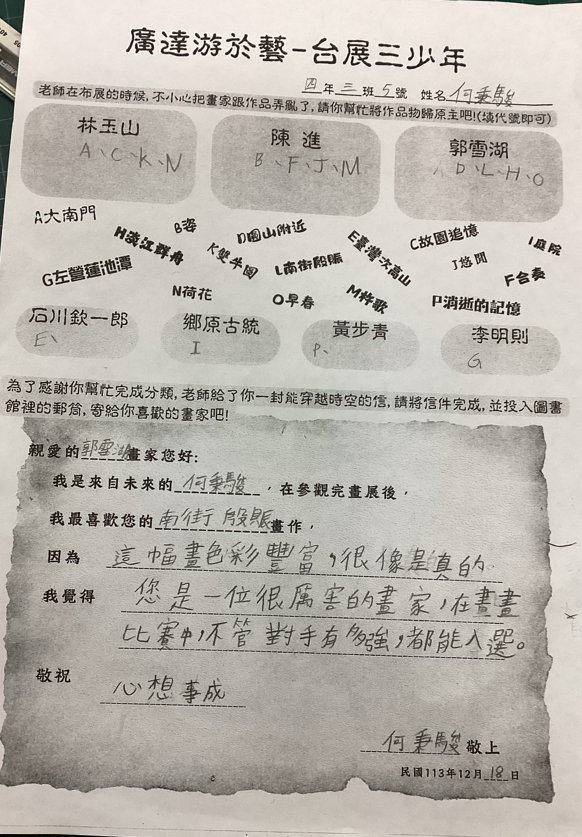 廣達游於藝-台展三少年
四年三班5號 姓名何秉駿
老師在布展的時候,不小心把畫家跟作品弄亂了,請你幫忙將作品物歸原主吧!(填代號即可)
林玉山
A、C、K、N
陳 進
B、F、J、M
郭雪湖
D、L、H、O
A大南門
H淡江群舟
B姿
K雙牛圖
D圓山附近
L南街殷賑
E臺灣次高山
C故園追憶
J悠閒
I庭院
F合奏
G左營蓮池潭
N荷花
O早春
M杵歌
P消逝的記憶
石川欽一郎
E、
鄉原古統
I
黃步青
P、
李明則
G
為了感謝你幫忙完成分類,老師給了你一封能穿越時空的信,請將信件完成,並投入圖書
館裡的郵筒,寄給你喜歡的畫家吧!
親愛的郭雪湖畫家您好:
我是來自未來的何秉駿,在參觀完畫展後,
我最喜歡您的南街殷賑畫作,
因為 這幅畫色彩豐富,很像是真的
我覺得 您是一位很厲害的畫家,在畫畫
比賽中,不管對手有多強,都能入選。
敬祝
心想事成
何秉駿 敬上
民國113年12月18日